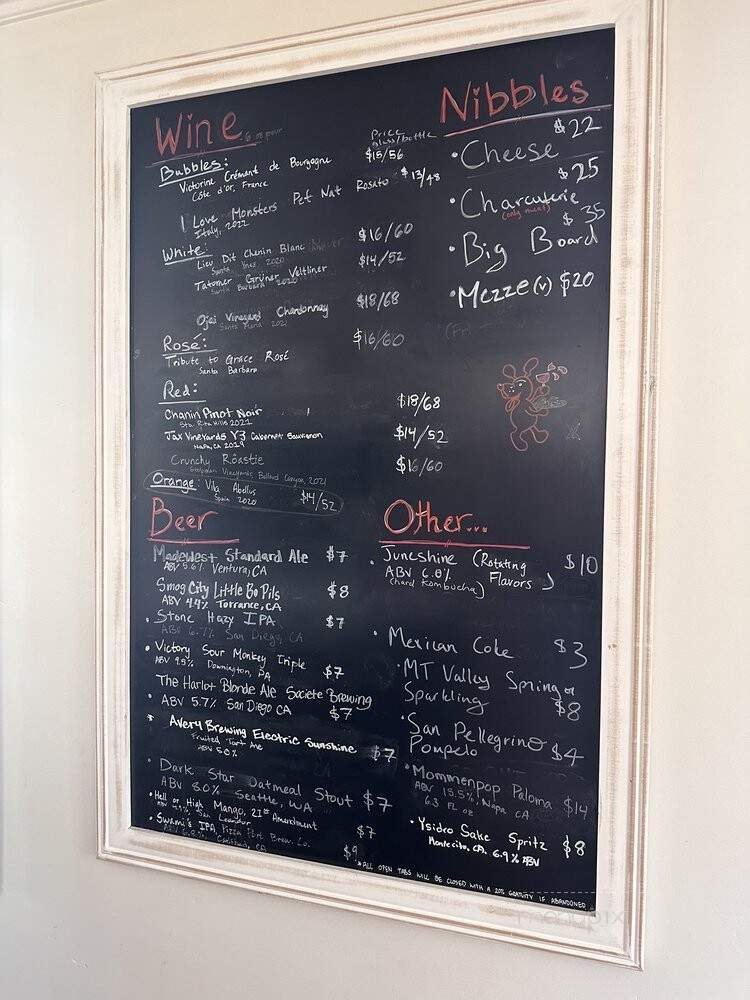 Wine 6 oz pour
Price
glass/bottle
Bubbles:
Victorine Crémant de Bourgogne $15/56
Côte d'or, France
I Love Monsters Pet Nat Rosato $13/48
Italy, 2022
White:
Lieu Dit Chenin Blanc $16/60
Santa Ynez 2020
Tatomer Grüner Veltliner $14/52
Santa Barbara 2020
Ojai Vineyard Chardonnay $18/68
Santa Maria 2021
Rosé: $16/60
Tribute to Grace Rosé
Santa Barbara
Red:
Chanin Pinot Noir $18/68
Sta. Rita Hills 2021
Jax Vineyards Y3 Cabernet Sauvignon $14/52
Napa, CA 2019
Crunchy Röastie $16/60
Vineyards Ballard Canyon, 2021
Orange: Vila Abellus $14/52
Spain 2020
Nibbles
• Cheese $22
• Charcuterie $25
(only meat)
• Big Board $35
• Mezze (v) $20
Beer
Madewest Standard Ale $7
ABV 5.6% Ventura, CA
Smog City Little Bo Pils $8
ABV 4.4% Torrance, CA
• Stone Hazy IPA $7
ABV 6.7% San Diego, CA
• Victory Sour Monkey Triple
ABV 9.5% Downington, PA $7
The Harlot Blonde Ale Societe Brewing
• ABV 5.7% San Diego CA $7
• Avery Brewing Electric Sunshine $7
Fruited Tart Ale
ABV 5.0%
• Dark Star Oatmeal Stout $7
ABV 8.0% Seattle, WA
• Hell or High Mango, 21st Amendment
ABV 4.9% San Leandro $7
• Swami's IPA, Pizza Port Brew. Co.
ABV 6.8% Carlsbad, CA $9
Other...
• Juneshine (Rotating $10
ABV 6.0% Flavors)
(hard Kombucha)
• Mexican Coke $3
• MT Valley Spring or
Sparkling $8
• San Pellegrino
Pompelo $4
• Mommenpop Paloma $14
ABV 13.5%, Napa CA
6.3 FL oz
• Ysidro Sake Spritz $8
Montecito, CA. 6.9% ABV
*ALL OPEN TABS WILL BE CLOSED WITH A 20% GRATUITY IF ABANDONED
menupix